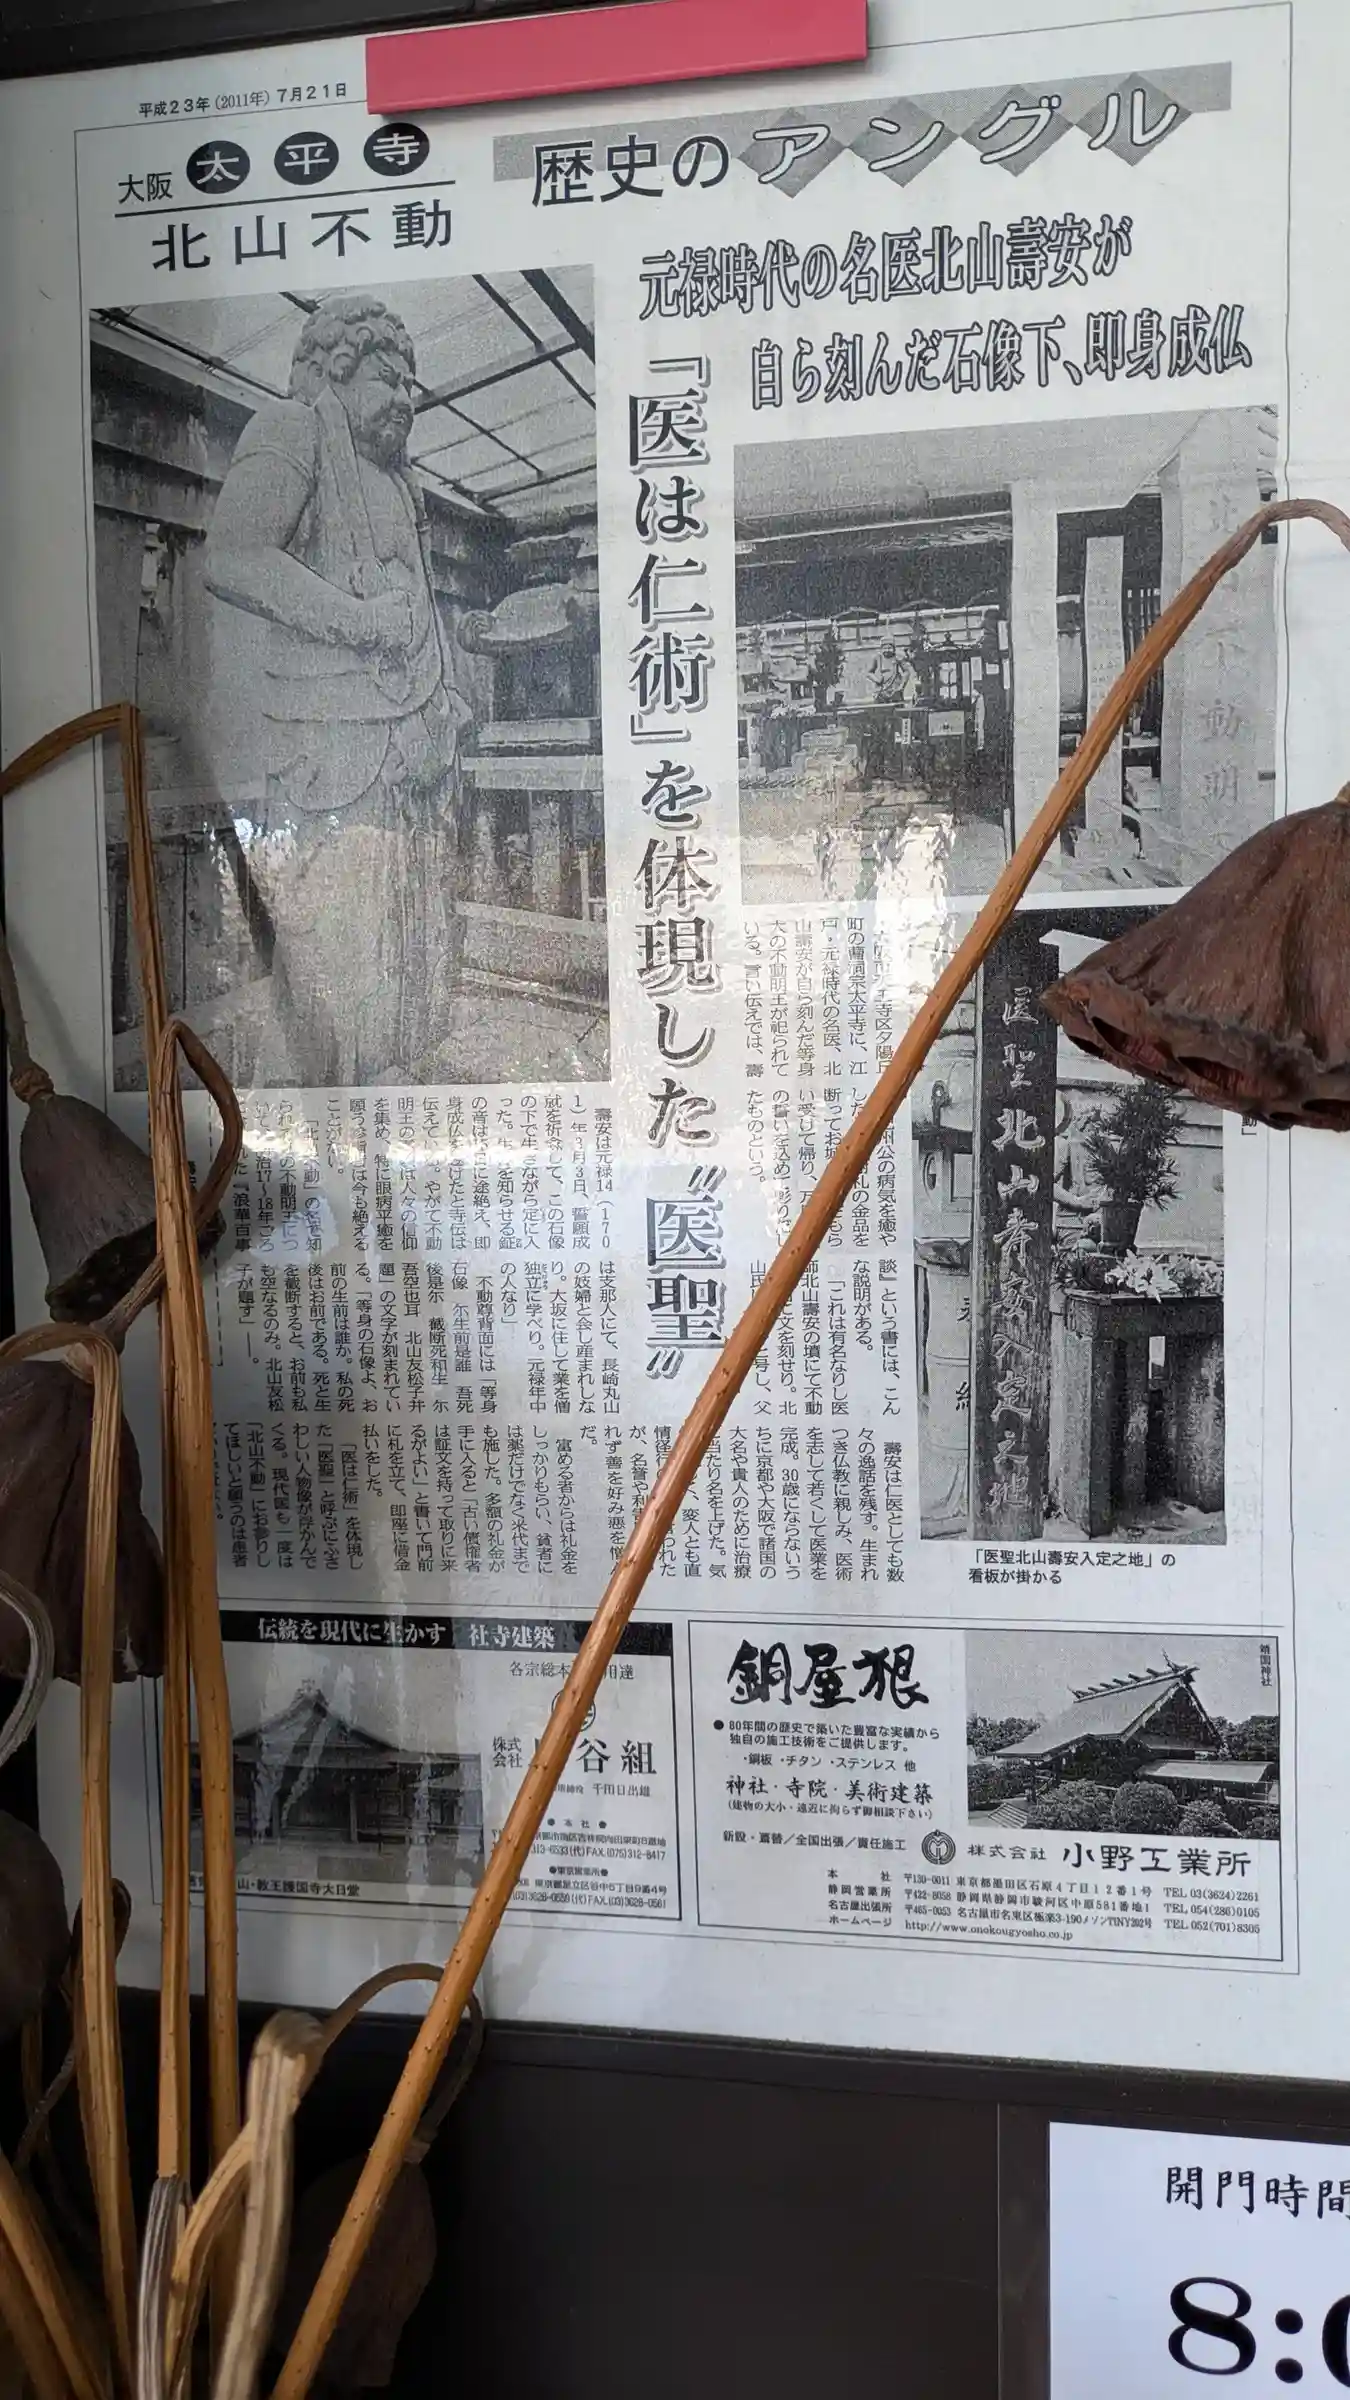 平成23年(2011年)7月21日
大阪 太平寺
北山不動
歴史のアングル
元禄時代の名医北山壽安が
自ら刻んだ石像下、即身成仏
「医は仁術」を体現した〝医聖〟
町の曹洞宗太平寺に、江
戸・元禄時代の名医、北
山壽安が自ら刻んだ等身
大の不動明王が祀られて
いる。言い伝えでは、壽
公の病気を癒や
礼の金品を
断ってお城
い受けて帰り、
の誓いを込めて彫り
たものという。
壽安は元禄14(170
1)年3月3日、誓願成
就を祈念して、この石像
の下で生きながら定に入
った。生を知らせる鉦
の音は日に途絶え、即
身成仏を遂げたと寺伝は
伝えている。やがて不動
明王の は人々の信仰
を集め、特に眼病平癒を
願う参詣者は今も絶える
ことがない。
「北山不動」の名で知
られるこの不動明王につ
いて、明治17〜18年ごろ
れた『浪華百事
談』という書には、こん
な説明がある。
「これは有名なりし医
師北山壽安の墳にて不動
に文を刻せり。北
山氏 と号し、父
は支那人にて、長崎丸山
の妓婦と会し産まれしな
り。大坂に住して業を僧
独立に学べり。元禄年中
の人なり」
不動尊背面には「等身
石像 尓生前是誰 吾死
後是尓 截断死和生 尓
吾空也耳 北山友松子弁
題」の文字が刻まれてい
る。「等身の石像よ、お
前の生前は誰か。私の死
後はお前である。死と生
を截断すると、お前も私
も空なるのみ。北山友松
子が題す」―。
壽安は仁医としても数
々の逸話を残す。生まれ
つき仏教に親しみ、医術
を志して若くして医業を
完成。30歳にならないう
ちに京都や大阪で諸国の
大名や貴人のために治療
に当たり名を上げた。気
く、変人とも直
情径行の 言われた
が、名誉や利
れず善を好み悪を憎ん
だ。
富める者からは礼金を
しっかりもらい、貧者に
は薬だけでなく米代まで
も施した。多額の礼金が
手に入ると「古い債権者
は証文を持って取りに来
るがよい」と書いて門前
に札を立て、即座に借金
払いをした。
「医は仁術」を体現し
た「医聖」と呼ぶにふさ
わしい人物像が浮かんで
くる。現代医も一度は
「北山不動」にお参りし
てほしいと願うのは患者
医聖 北山寿安入定之地
「医聖北山壽安入定之地」の
看板が掛かる
伝統を現代に生かす 社寺建築
各宗総本 用達
株式
会社 谷組
●本社●
(代)FAX.(075)312-8417
●東京営業所●
東京都足立区谷中5丁目9番4号
(03)3628-0559(代)FAX.(03)3628-0561
山・教王護国寺大日堂
銅屋根
靖国神社
●80年間の歴史で築いた豊富な実績から
独自の施工技術をご提供します。
・銅板 ・チタン ・ステンレス 他
神社・寺院・美術建築
(建物の大小・遠近に拘らず御相談下さい)
新設・葺替/全国出張/責任施工
株式会社 小野工業所
本社 〒130-0011 東京都墨田区石原4丁目12番1号 TEL 03(3624)2261
静岡営業所 〒422-8058 静岡県静岡市駿河区中原581番地1 TEL 054(286)0105
名古屋出張所 〒465-0053 名古屋市名東区極楽3-190メゾンTINY202号 TEL 052(701)8305
ホームページ http://www.onokougyosho.co.jp
開門時間
8:0